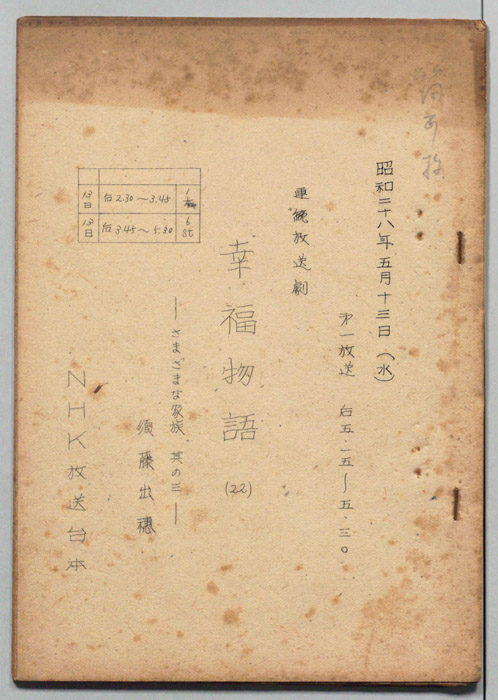 昭和二十八年五月十三日(水)
第一放送 后五・一五〜五・三〇
連続放送劇
幸福物語
(22)
―さまざまな家族 其の三―
須藤出穂
13日 后2.30〜3.45 1本
13日 后3.45〜5.30 6st
NHK放送台本